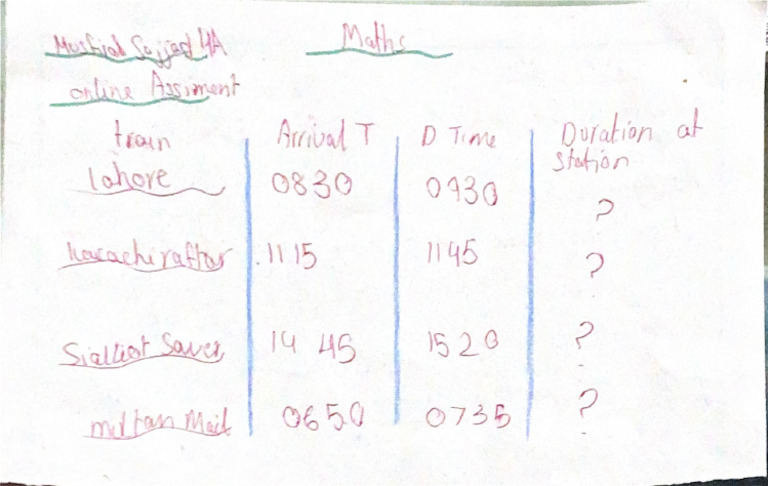 Sajjad 4A
Maths
online Assiment
train Arrival T D Time Duration at station
lahore 0830 0930 ?
karachi raftar 11 15 1145 ?
Sialkot Saver 14 45 15 20 ?
multan Mail 0650 0735 ?